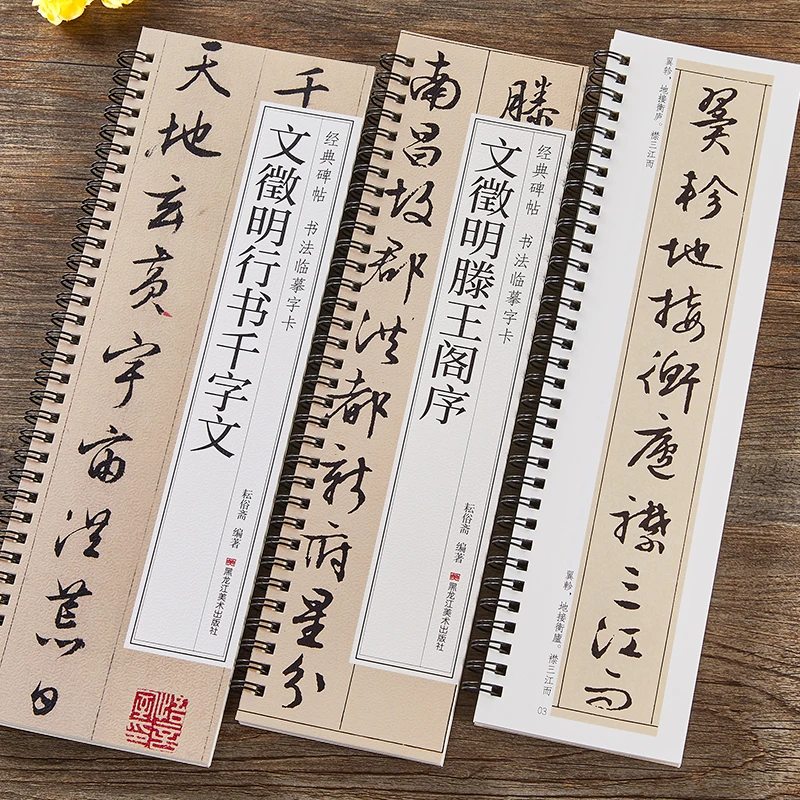 千
天地玄黄宇宙洪荒日
经典碑帖 书法临摹字卡
文徵明行书千字文
耘俗斋 编著
黑龙江美术出版社
滕
南昌故郡洪都新府星分
经典碑帖 书法临摹字卡
文徵明滕王阁序
耘俗斋 编著
黑龙江美术出版社
翼轸，地接衡庐。襟三江而
翼轸地接衡庐襟三江而
翼軫，地接衡廬。襟三江而
03